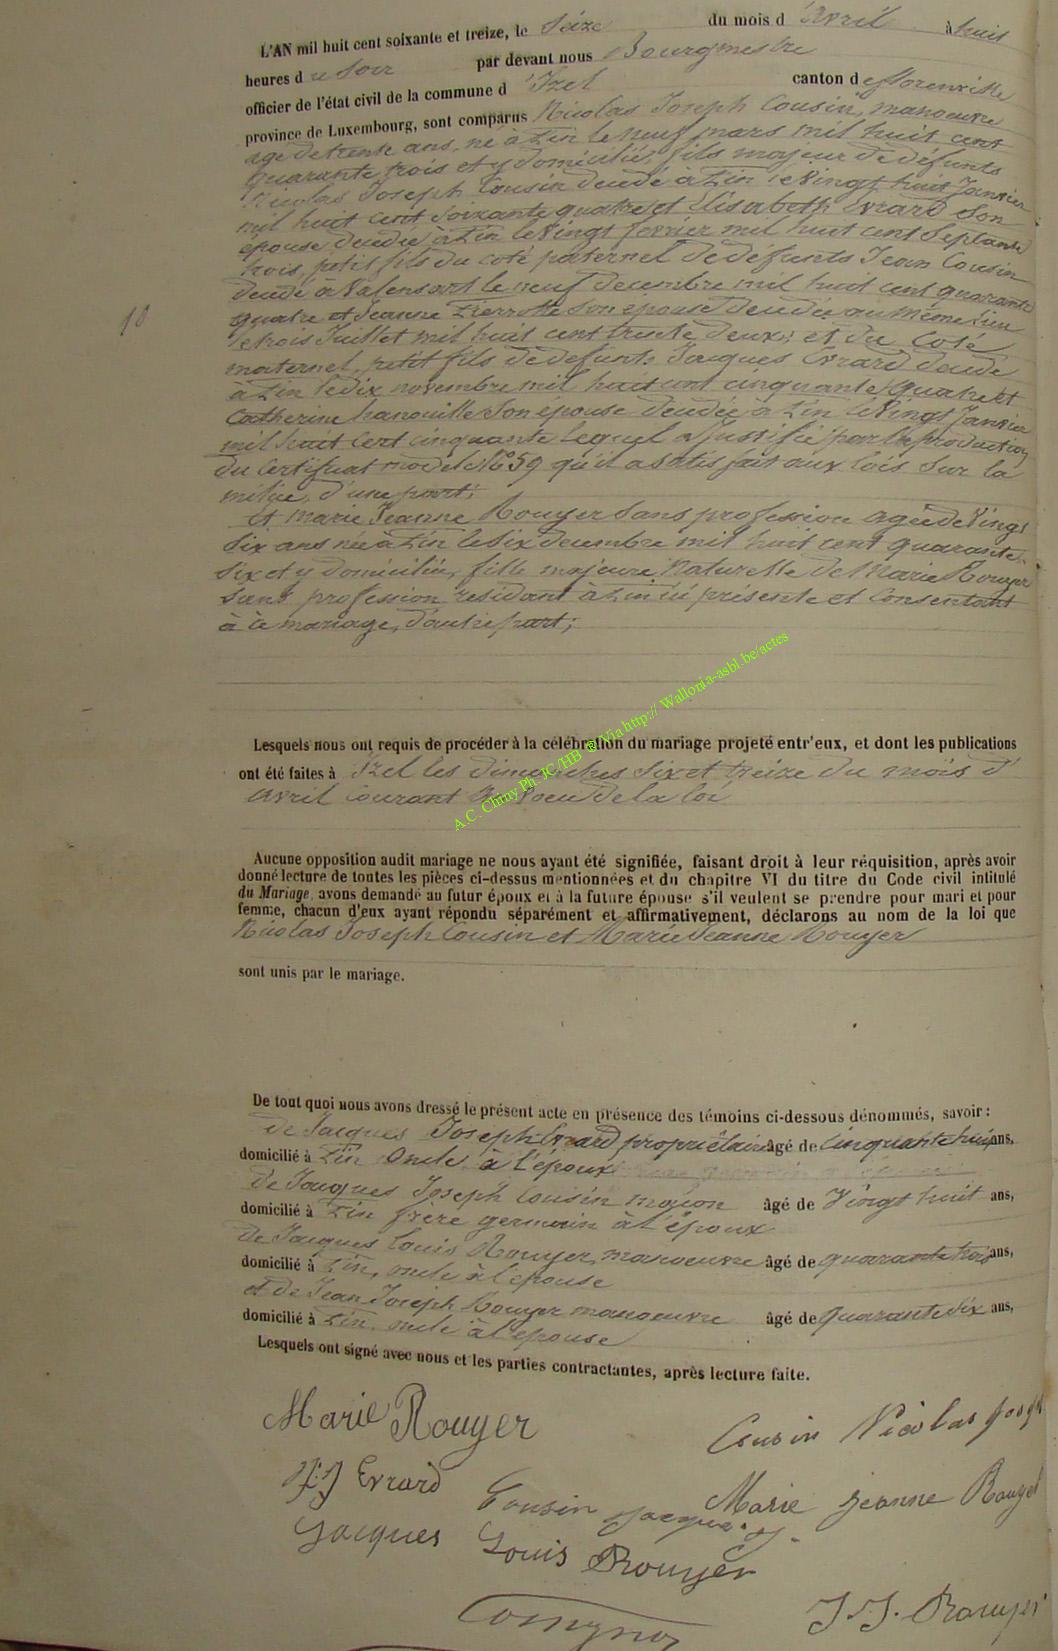 L'AN mil huit cent soixante et treize, le Seize du mois d'Avril à huit
heures du soir par devant nous Bourgmestre
officier de l'état civil de la commune d'Izel canton de florenville
province de Luxembourg, sont comparus Nicolas Joseph Cousin, manoeuvre
age de trente ans, né à Pin le neuf mars mil huit cent
quarante trois et y domicilié, fils majeur de défunts
Nicolas Joseph Cousin décédé à Pin le Vingt huit Janvier
mil huit cent soixante quatre et Elisabeth Evrard son
epouse décédée à Pin le Vingt fevrier mil huit cent Septante
trois, petit fils du coté paternel de défunts Jean Cousin
décédé à Valansart le neuf decembre mil huit cent quarante
quatre et Jeanne Pierrotte son epouse décédée au même lieu
le trois Juillet mil huit cent trente deux; et du Coté
maternel, petit fils de defunts Jacques Evrard décédé
à Pin le dix novembre mil huit cent cinquante quatre et
Catherine hanouille Son épouse décédée à Pin le Vingt Janvier
mil huit cent cinquante lequel a Justifié par la production
du certificat modèle N° 59 qu'il a satisfait aux lois sur la
milice, d'une part;
Et marie Jeanne Rouyer Sans profession agée de Vingt
Six ans née à Pin le Six decembre mil huit cent quarante
Six et y domiciliée, fille majeure Naturelle de Marie Rouyer
Sans profession residant à Pin ici présente et Consentant
à ce mariage, d'autre part;
18
Lesquels nous ont requis de procéder à la célébration du mariage projeté entr'eux, et dont les publications
ont été faites à Izel les dimanches Six et treize du mois d'
Avril courant au Voeu de la loi
A.C. Chiny Ph. JC/HB ® Via http:// Wallonia-asbl.be/actes
Aucune opposition audit mariage ne nous ayant été signifiée, faisant droit à leur réquisition, après avoir
donné lecture de toutes les pièces ci-dessus mentionnées et du chapitre VI du titre du Code civil intitulé
du Mariage, avons demandé au futur époux et à la future épouse s'il veulent se prendre pour mari et pour
femme, chacun d'eux ayant répondu séparément et affirmativement, déclarons au nom de la loi que
Nicolas Joseph Cousin et Marie Jeanne Rouyer
sont unis par le mariage.
De tout quoi nous avons dressé le présent acte en présence des témoins ci-dessous dénommés, savoir :
de Jacques Joseph Evrard propriétaire âgé de Cinquante huit ans,
domicilié à Pin Oncle à l'époux
de Jacques Joseph Cousin maçon âgé de Vingt huit ans,
domicilié à Pin frère germain à l'époux
de Jacques Louis Rouyer, manoeuvre âgé de quarante trois ans,
domicilié à Pin, oncle à l'épouse
et de Jean Joseph Rouyer manoeuvre âgé de quarante Six ans,
domicilié à Pin, oncle à l'epouse
Lesquels ont signé avec nous et les parties contractantes, après lecture faite.
Marie Rouyer
Cousin Nicolas Josph
J:J Evrard
Cousin Jacques J.
Marie Jeanne Rouyer
Jacques Louis Rouyer
J.J. Rouyer